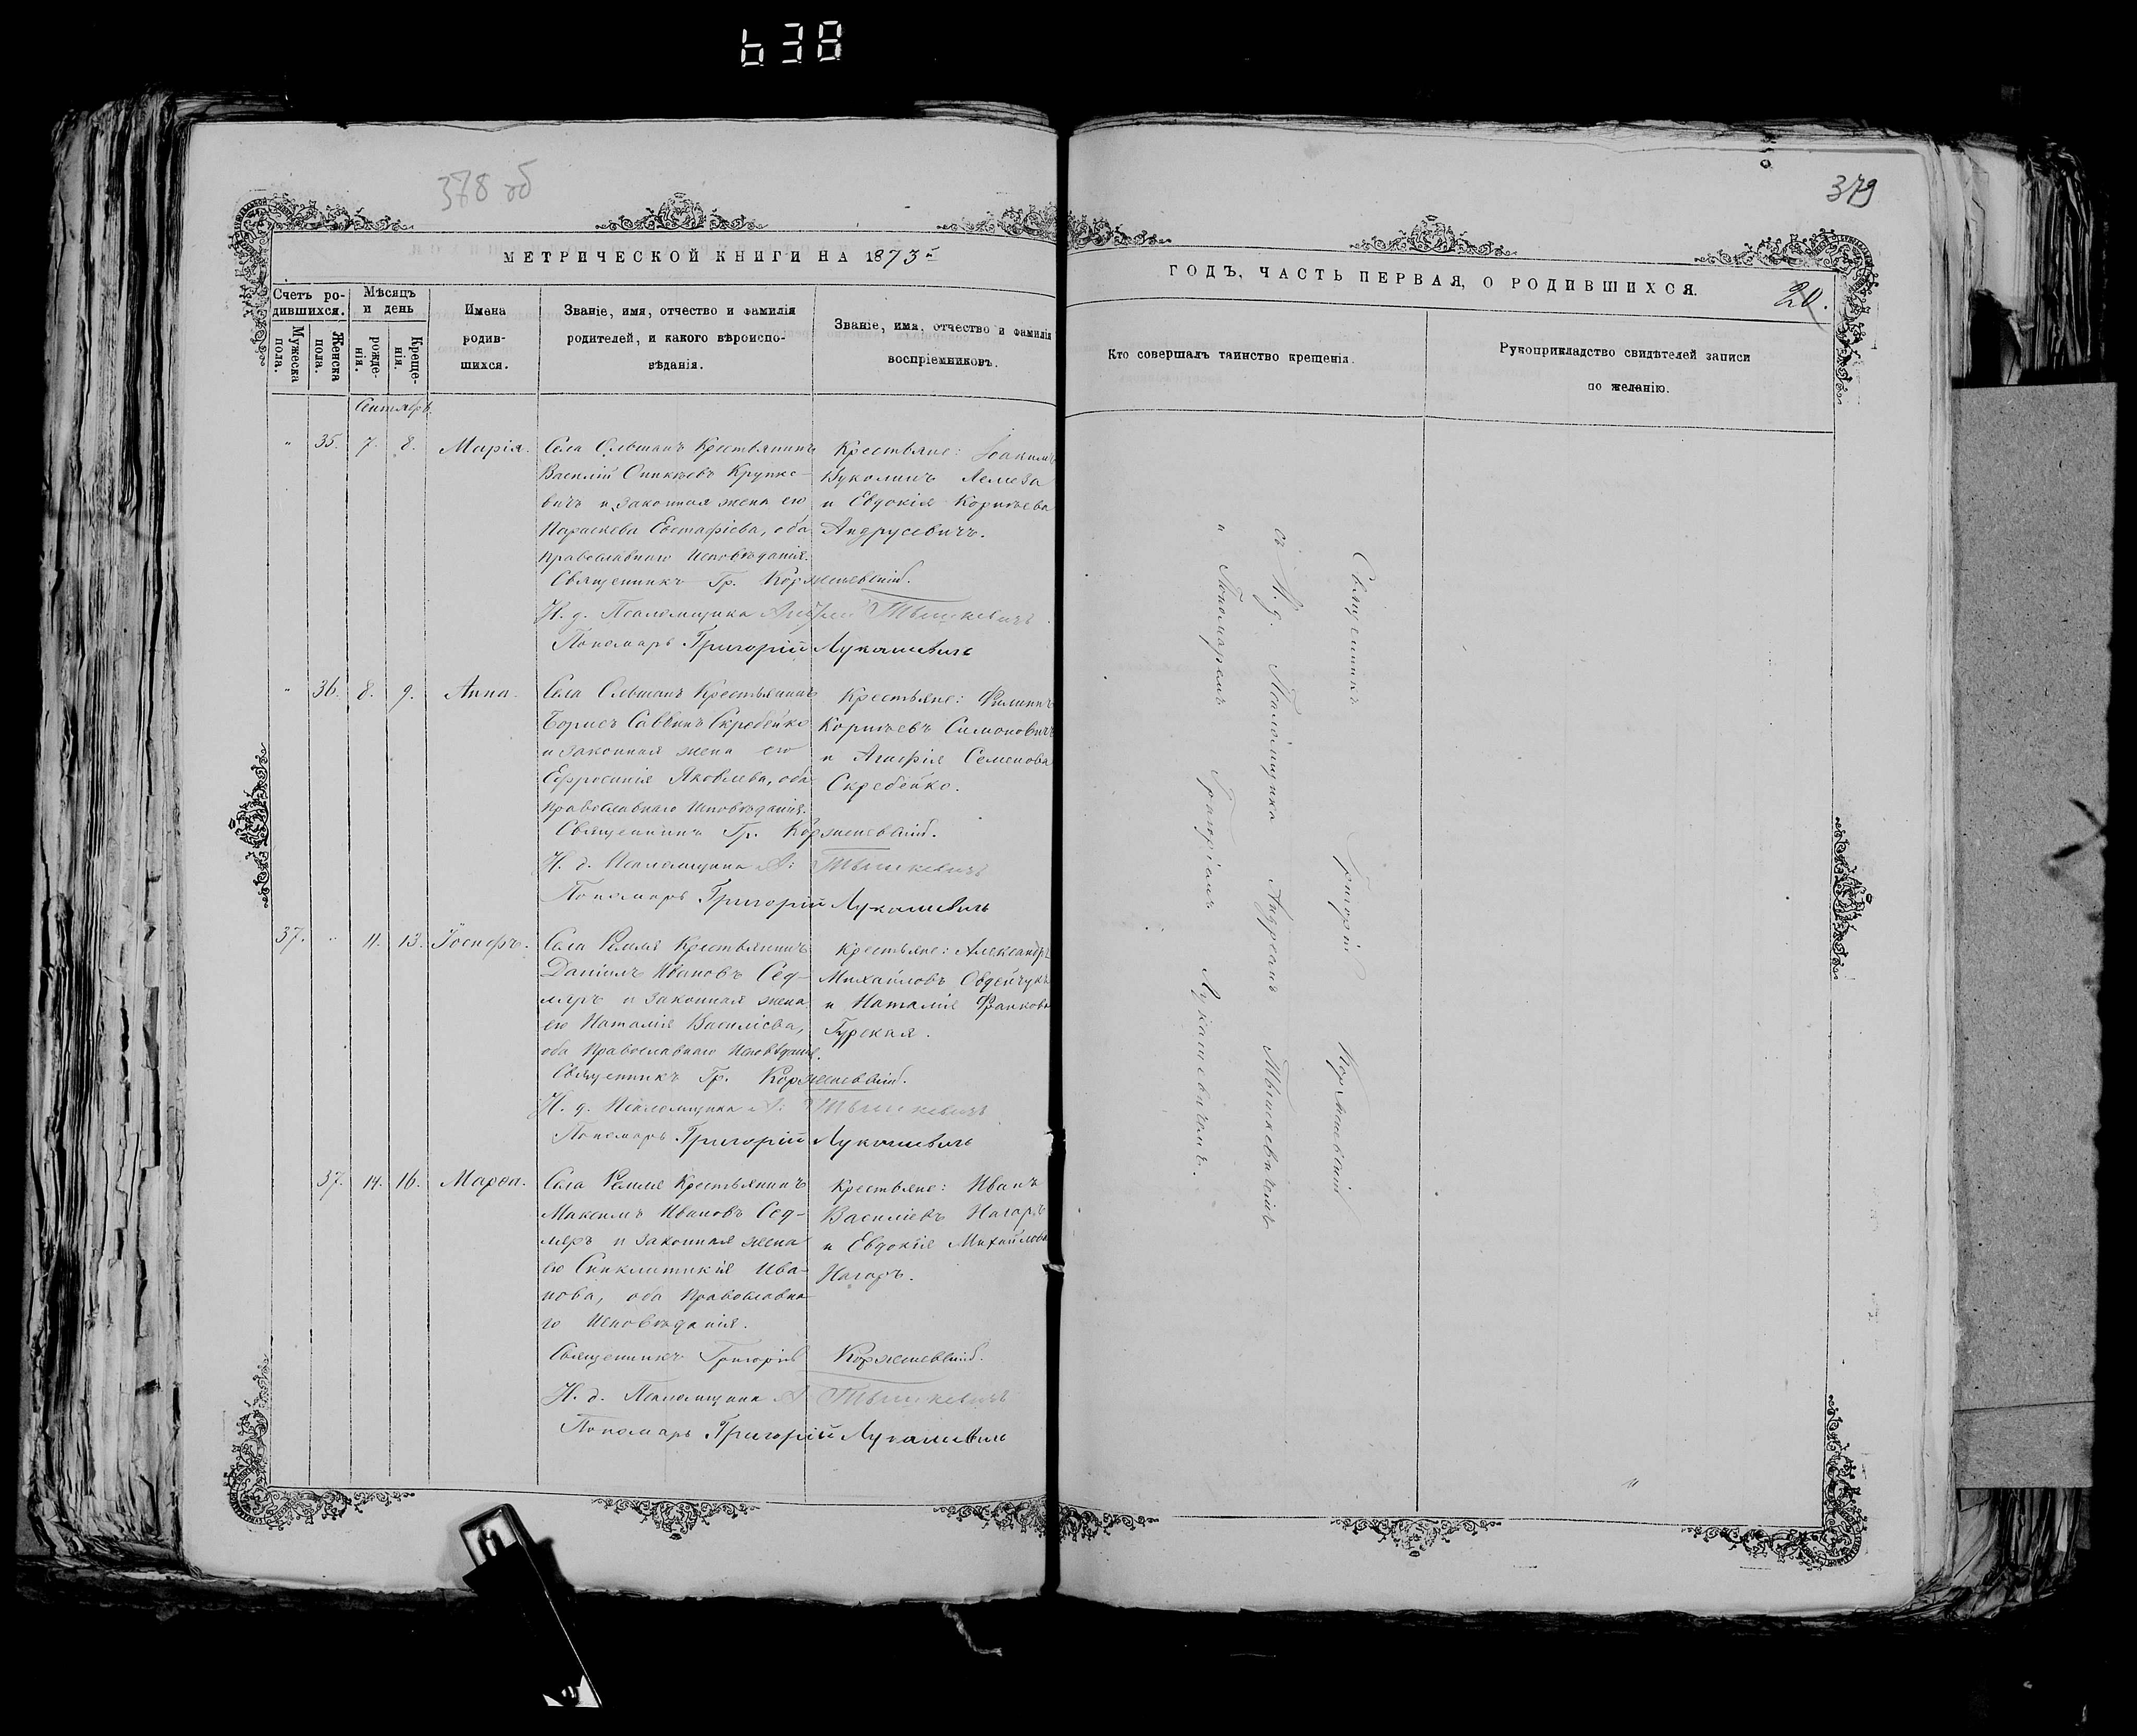 638
378 об
МЕТРИЧЕСКОЙ КНИГИ НА 1873й
Счетъ ро-
дившихся.
Мужеска
пола.
Женска
пола.
Мѣсяцъ
и день
рожде-
нія.
Креще-
нія.
Имена
родив-
шихся.
Званіе, имя, отчество и фамилія
родителей, и какого вѣроиспо-
вѣданія.
Званіе, имя, отчество и фамилія
воспріемниковъ.
Сентябрь
" 35. 7. 8. Марія.
Села Ольшанъ Крестьянинъ
Василій Крупко-
вичъ и законная жена его
Параскева Евстафіева, оба
Православнаго Исповѣданія.
Крестьяне: Іоакимъ
Вуколинъ
и Евдокія Корнѣева
Андрусевичъ.
Священникъ Гр. Корженевскій.
И. д. Псаломщика Андрей Тышкевичъ
Пономарь Григорій Лукашевичъ
" 36. 8. 9. Анна.
Села Ольшанъ Крестьянинъ
Борисъ Саввинъ Скребейко
и законная жена его
Ефросинія Яковлева, оба
Православнаго Исповѣданія.
Крестьяне: Филиппъ
Корнѣевъ Симоновичъ
и Агафія Семенова
Скребейко.
Священникъ Гр. Корженевскій.
И. д. Псаломщика А: Тышкевичъ
Пономарь Григорій Лукашевичъ
37. " 11. 13. Іосифъ.
Села Крестьянинъ
Даніилъ Ивановъ Сед-
ляръ и законная жена
его Наталія Василіева,
оба Православнаго Исповѣданія.
Крестьяне: Александръ
Михайловъ Овдейчукъ
и Наталія
Гурская.
Священникъ Гр. Корженевскій.
И. д. Псаломщика А: Тышкевичъ
Пономарь Григорій Лукашевичъ
37. 14. 16. Марѳа.
Села Крестьянинъ
Максимъ Ивановъ Сед-
ляръ и законная жена
его Синклитикія Ива-
нова, оба Православна-
го Исповѣданія.
Крестьяне: Иванъ
Василіевъ Нагоръ
и Евдокія Михайлова
Нагоръ.
Священникъ Григорій Корженевскій.
И. д. Псаломщика А Тышкевичъ
Пономарь Григорій Лукашевичъ
379
ГОДЪ, ЧАСТЬ ПЕРВАЯ, О РОДИВШИХСЯ.
20.
Кто совершалъ таинство крещенія.
Рукоприкладство свидѣтелей записи
по желанію.
Священникъ Григорій Корженевскій
съ И. д. Псаломщика Андреемъ Тышкевичемъ
и Пономаремъ Григоріемъ Лукашевичемъ.